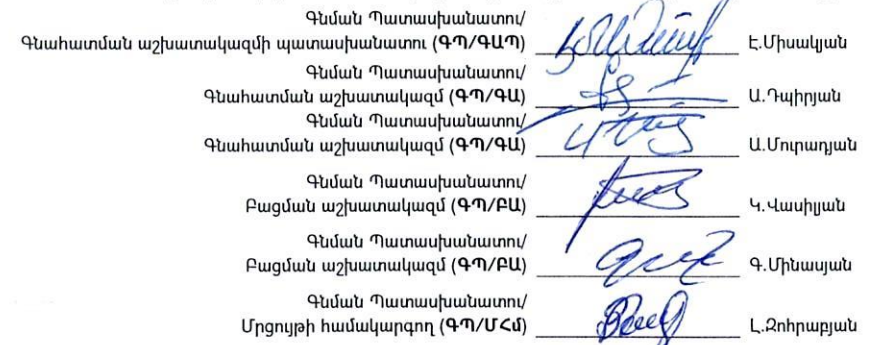 Գնման Պատասխանատու/
Գնահատման աշխատակազմի պատասխանատու (ԳՊ/ԳԱՊ) Է.Միսակյան
Գնման Պատասխանատու/
Գնահատման աշխատակազմ (ԳՊ/ԳԱ) Ա.Դպիրյան
Գնման Պատասխանատու/
Գնահատման աշխատակազմ (ԳՊ/ԳԱ) Ա.Մուրադյան
Գնման Պատասխանատու/
Բացման աշխատակազմ (ԳՊ/ԲԱ) Կ.Վասիլյան
Գնման Պատասխանատու/
Բացման աշխատակազմ (ԳՊ/ԲԱ) Գ.Մինասյան
Գնման Պատասխանատու/
Մրցույթի համակարգող (ԳՊ/ՄՀմ) Լ.Զոհրաբյան